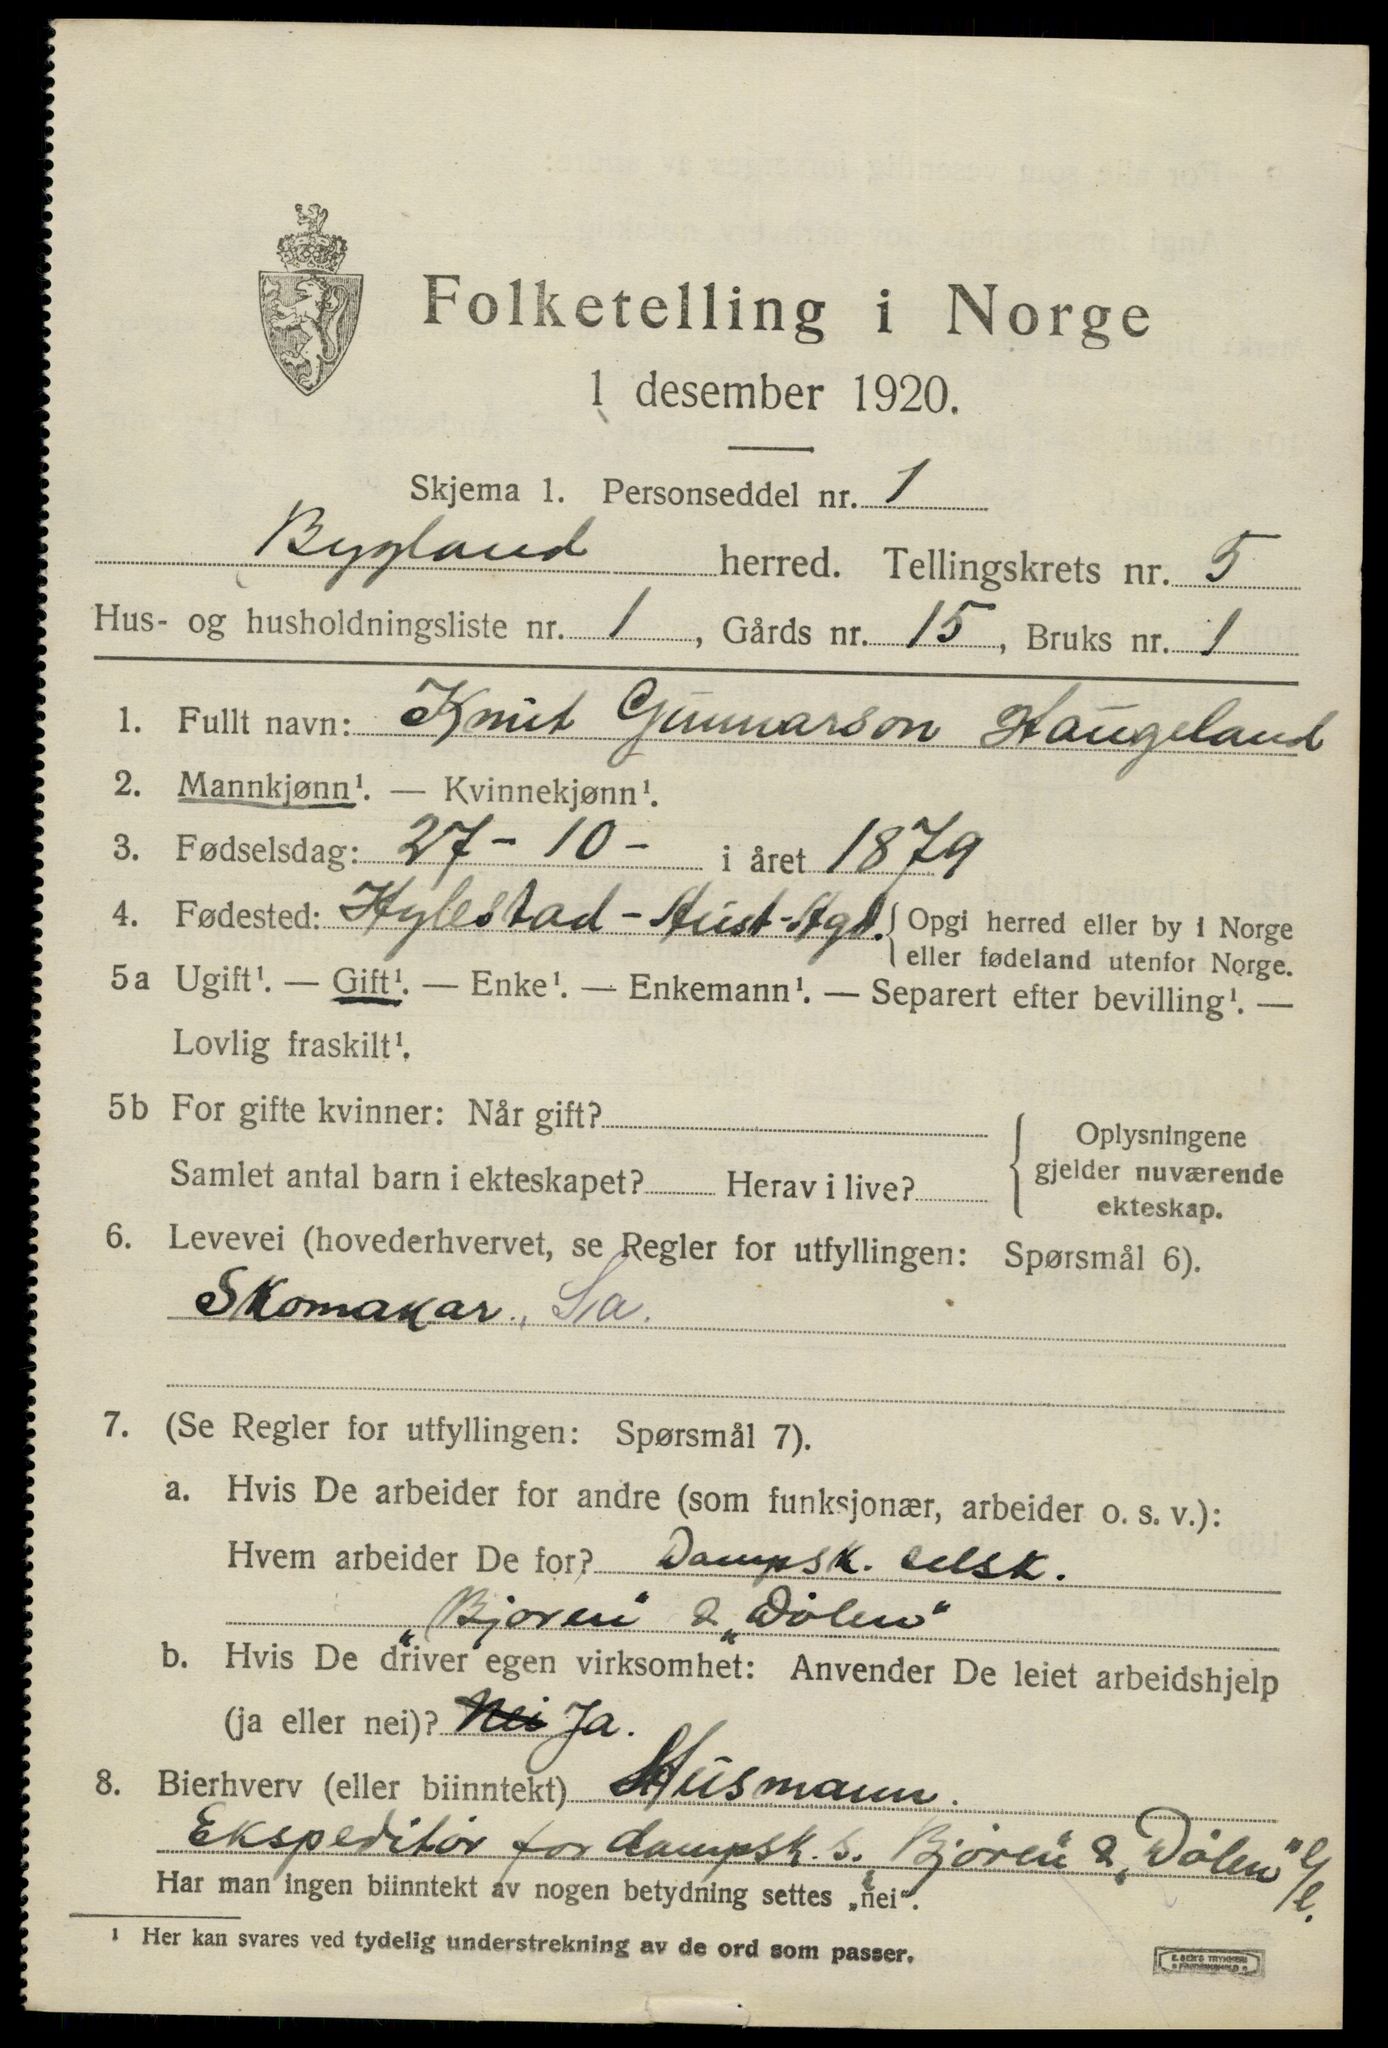 Folketelling i Norge
1 desember 1920.
Skjema 1. Personseddel nr. 1
Bygland herred. Tellingskrets nr. 5
Hus- og husholdningsliste nr. 1, Gårds nr. 15, Bruks nr. 1
1. Fullt navn: Knut Gunnarson Haugeland
2. Mannkjønn¹. — Kvinnekjønn¹.
3. Fødselsdag: 27 - 10 - i året 1879
4. Fødested: Hylestad - Aust-Agd. { Opgi herred eller by i Norge
eller fødeland utenfor Norge.
5a Ugift¹. — Gift¹. — Enke¹. — Enkemann¹. — Separert efter bevilling¹. —
Lovlig fraskilt¹.
5b For gifte kvinner: Når gift?
Samlet antal barn i ekteskapet? Herav i live?
{ Oplysningene
gjelder nuværende
ekteskap.
6. Levevei (hovederhvervet, se Regler for utfyllingen: Spørsmål 6).
Skomakar, Sa.
7. (Se Regler for utfyllingen: Spørsmål 7).
a. Hvis De arbeider for andre (som funksjonær, arbeider o. s. v.):
Hvem arbeider De for? Dampsk. selsk.
„Bjoren" & „Dölen"
b. Hvis De driver egen virksomhet: Anvender De leiet arbeidshjelp
(ja eller nei)? Nei Ja.
8. Bierhverv (eller biinntekt) Husmann.
Ekspeditör for dampsk. s. „Bjoren" & „Dölen" e/l.
Har man ingen biinntekt av nogen betydning settes „nei".
¹ Her kan svares ved tydelig understrekning av de ord som passer.